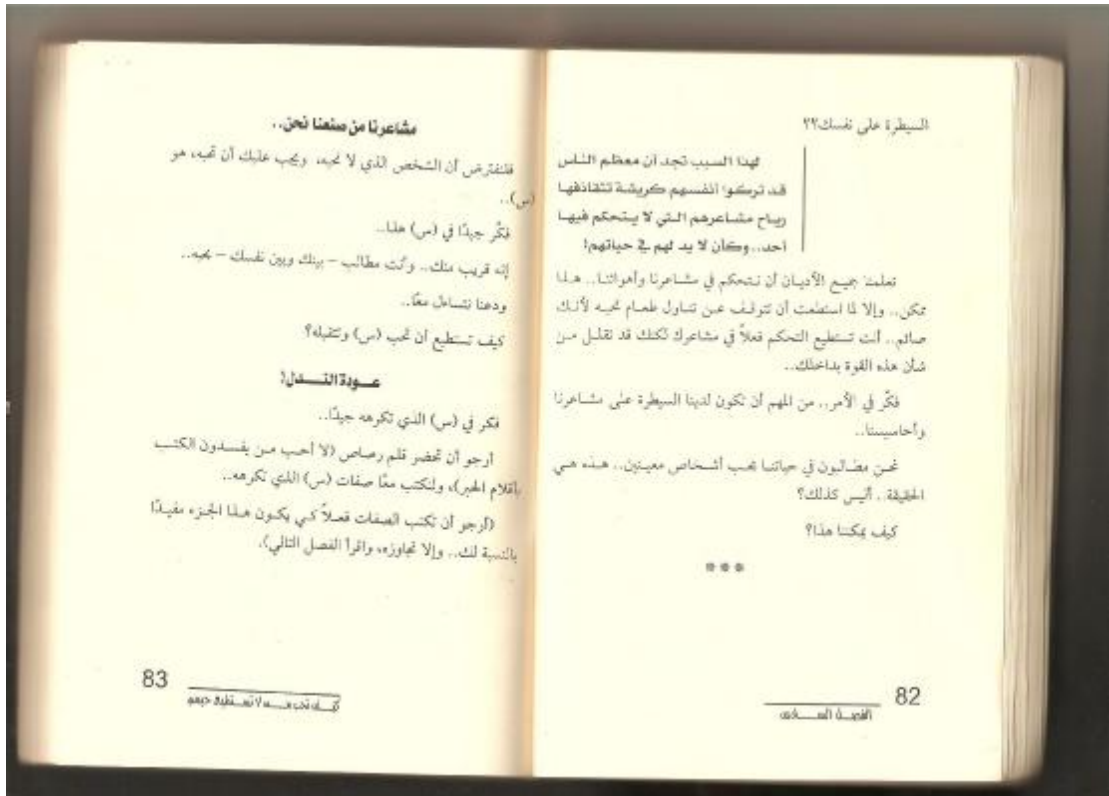 السيطرة على نفسك؟؟
لهذا السبب تجد أن معظم الناس
قد تركوا أنفسهم كريشة تتقاذفها
رياح مشاعرهم التي لا يتحكم فيها
أحد.. وكأن لا يد لهم في حياتهم!
تعلمنا جميع الأديان أن نتحكم في مشاعرنا وأهوائنا.. هذا
ممكن.. وإلا لما استطعت أن تتوقف عن تناول طعام تحبه لأنك
صائم.. أنت تستطيع التحكم فعلاً في مشاعرك لكنك قد تقلل من
شأن هذه القوة بداخلك..
فكّر في الأمر.. من المهم أن تكون لدينا السيطرة على مشاعرنا
وأحاسيسنا..
نحن مطالبون في حياتنا بحب أشخاص معينين.. هذه هي
الحقيقة.. أليس كذلك؟
كيف يمكننا هذا؟
***
82
الفصل السادس
مشاعرنا من صنعنا نحن..
فلنفترض أن الشخص الذي لا تحبه، ويجب عليك أن تحبه، هو
(س)..
فكّر جيدًا في (س) هذا..
إنه قريب منك.. وأنت مطالب – بينك وبين نفسك – بحبه..
ودعنا نتساءل معًا..
كيف تستطيع أن تحب (س) وتتقبله؟
عودة النـدل!
فكر في (س) الذي تكرهه جيدًا..
أرجو أن تحضر قلم رصاص (لا أحب من يفسدون الكتب
بأقلام الحبر)، ولنكتب معًا صفات (س) الذي تكرهه..
(أرجو أن تكتب الصفات فعلاً كي يكون هذا الجزء مفيدًا
بالنسبة لك.. وإلا تجاوزه، واقرأ الفصل التالي).
83
كيف تحب من لا تستطيع حبهم